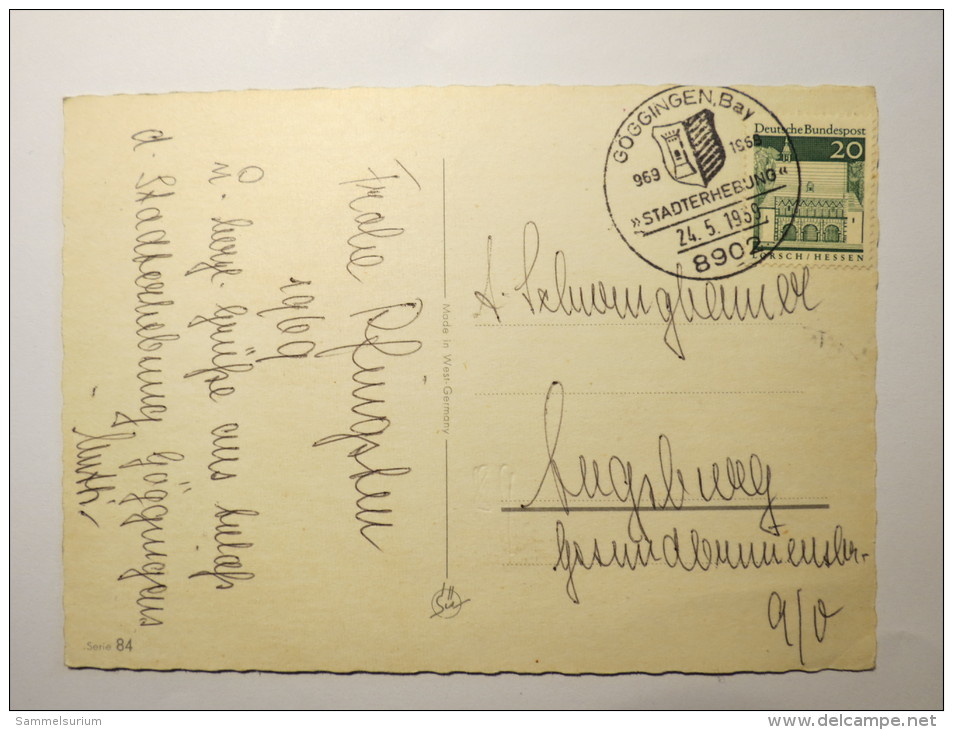 Frohe Pfingsten
1969
u. herzl. Grüße aus Anlaß
d. Stadterhebung Göggingens
Mutti
Made in West-Germany
Serie 84
GÖGGINGEN, Bay
969 1969
»STADTERHEBUNG«
24. 5. 1969
8902
Deutsche Bundespost
20
LORSCH / HESSEN
Augsburg
Gesundbrunnenstr.
9/0
Sammelsurium
www.delcampe.net